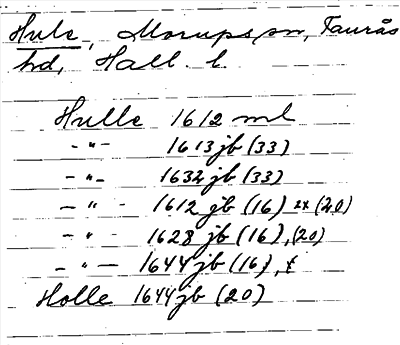 Hule, Morups sn, Faurås
hd, Hall. l.
Hulle 1612 ml
-"- 1613 jb (33)
-"- 1632 jb (33)
-"- 1612 jb (16) (20)
-"- 1628 jb (16), (20)
-"- 1644 jb (16),
Holle 1644 jb (20)